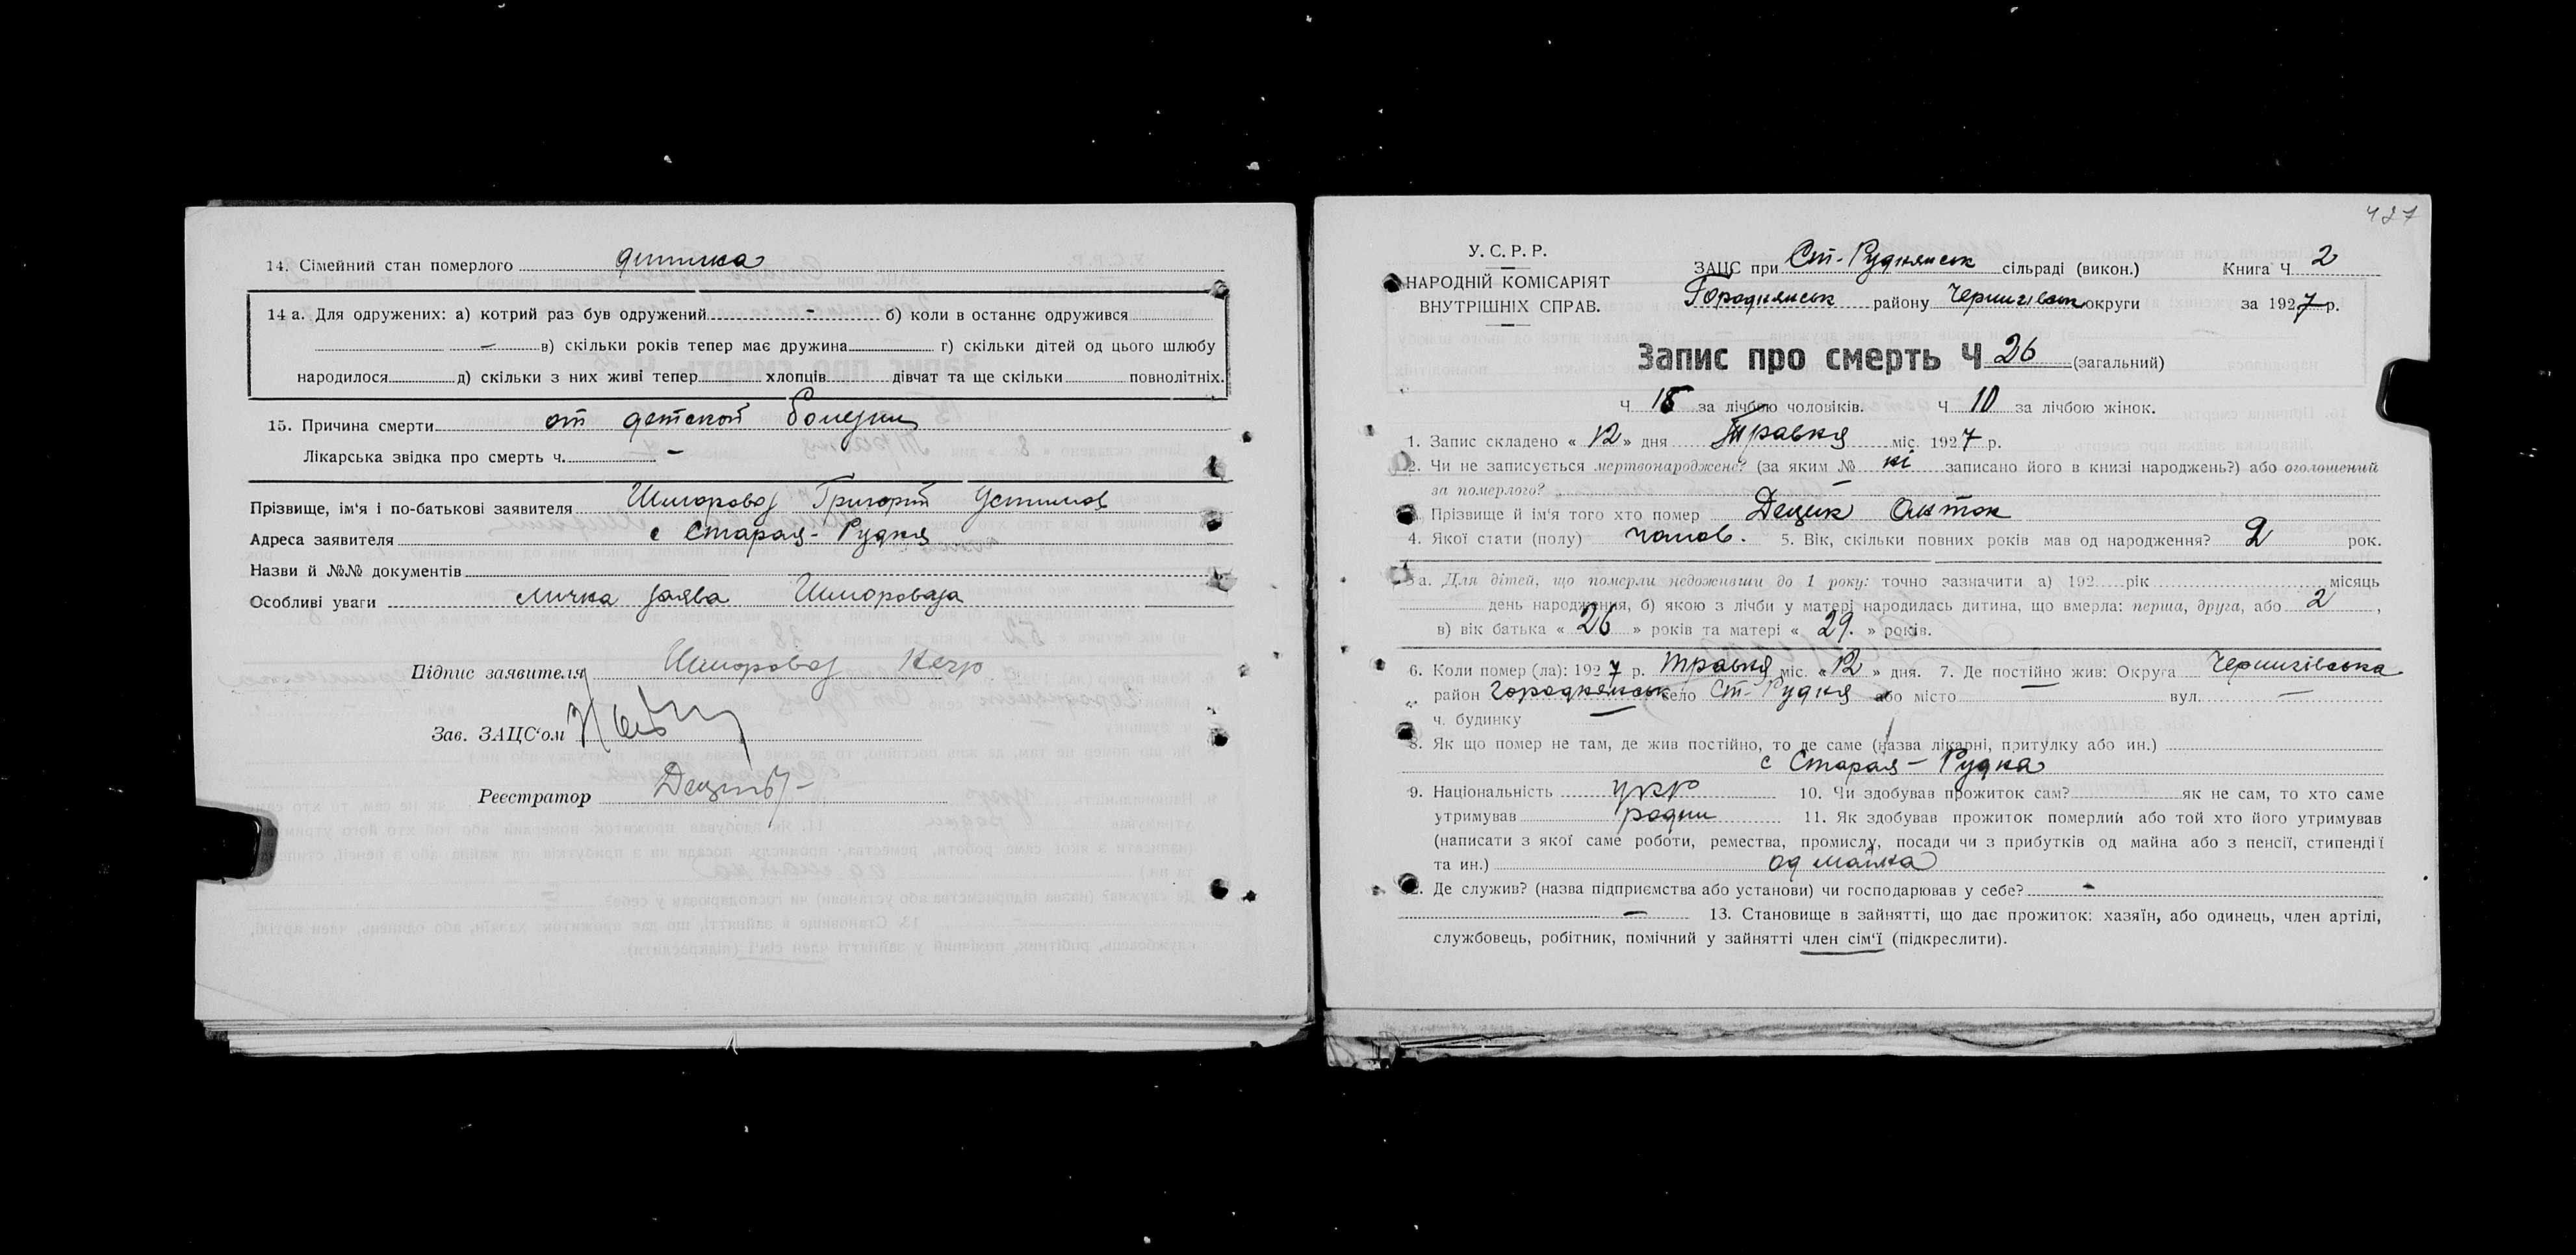 14. Сімейний стан померлого дитина
14 а. Для одружених: а) котрий раз був одружений - б) коли в останнє одружився
— в) скільки років тепер має дружина г) скільки дітей од цього шлюбу
народилося д) скільки з них живі тепер хлопців дівчат та ще скільки повнолітніх.
15. Причина смерти от детской болезни
Лікарська звідка про смерть ч. -
Прізвище, ім'я і по-батькові заявителя Григорий Устимов
Адреса заявителя с Старая-Рудня
Назви й №№ документів
Особливі уваги заява
Підпис заявителя
Зав. ЗАЦС'ом
Реєстратор
427
У. С. Р. Р.
НАРОДНІЙ КОМІСАРІЯТ
ВНУТРІШНІХ СПРАВ.
ЗАЦС при Ст-Руднянськ сільраді (викон.) Книга Ч 2
Городнянськ району Чернигівськ округи за 1927 р.
Запис про смерть Ч 26 (загальний)
Ч 16 за лічбою чоловіків. Ч 10 за лічбою жінок.
1. Запис складено « 12 » дня Травня міс. 1927 р.
2. Чи не записується мертвонароджене? (за яким № ні записано його в книзі народжень?) або оголошений
за померлого? —
Прізвище й ім'я того хто помер Децик Антон
4. Якої стати (полу) чолов. 5. Вік, скільки повних років мав од народження? 2 рок.
5 а. Для дітей, що померли недоживши до 1 року: точно зазначити а) 192 рік місяць
день народження, б) якою з лічби у матері народилась дитина, що вмерла: перша, друга, або 2 ,
в) вік батька « 26 » років та матері « 29. » років.
6. Коли помер (ла): 1927 р. травня міс. «12» дня. 7. Де постійно жив: Округа Чернигівська
район Городнянськ село Ст-Рудня або місто — вул. —
ч. будинку —
8. Як що помер не там, де жив постійно, то де саме (назва лікарні, притулку або ин.)
с Старая-Рудня
9. Національність укр 10. Чи здобував прожиток сам? як не сам, то хто саме
утримував родит 11. Як здобував прожиток померлий або той хто його утримував
(написати з якої саме роботи, ремества, промислу, посади чи з прибутків од майна або з пенсії, стипендії
та ин.) од майна
12. Де служив? (назва підприємства або установи) чи господарював у себе? -
— 13. Становище в зайнятті, що дає прожиток: хазяїн, або одинець, член артілі,
службовець, робітник, помічний у зайнятті член сім'ї (підкреслити).